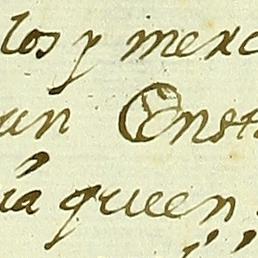 los y merc
un Const
ia queen